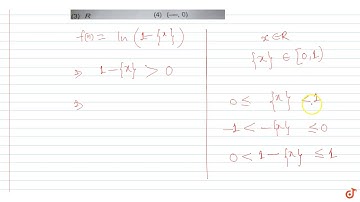 (3) R (4) (-∞, 0)
f(x) = ln (1-{x})
⇒ 1-{x} > 0
⇒
x ∈ R
{x} ∈ [0,1)
0 ≤ {x} < 1
-1 < -{x} ≤ 0
0 < 1-{x} ≤ 1